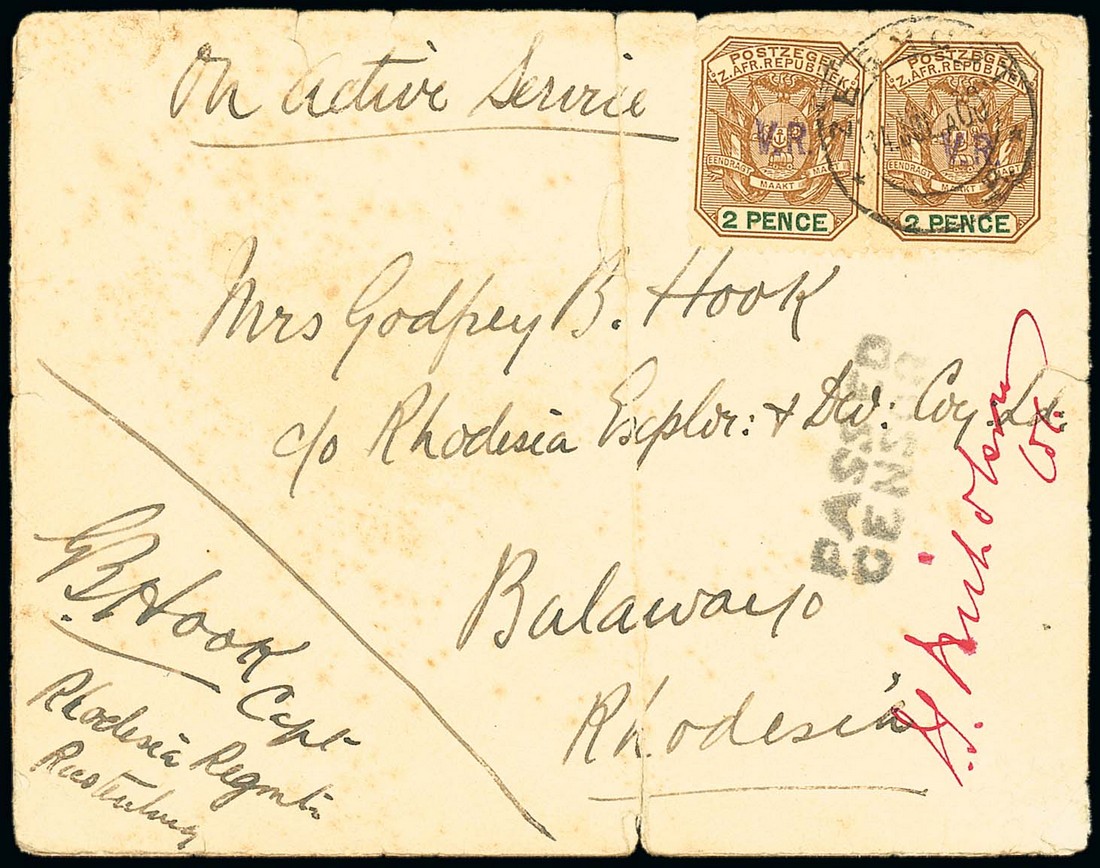 On Active Service
POSTZEGEL
Z. AFR. REPUBLIEK
V.R.
EENDRAGT MAAKT MAGT
2 PENCE
POSTZEGEL
Z. AFR. REPUBLIEK
V.R.
EENDRAGT MAAKT MAGT
2 PENCE
Mrs Godfrey B. Hook
c/o Rhodesia Explor: & Dev: Coy: Ld:
Bulawayo
Rhodesia
PASSED
CENSOR
G.B. Hook Capt
Rhodesia Regmt:
Rustenburg